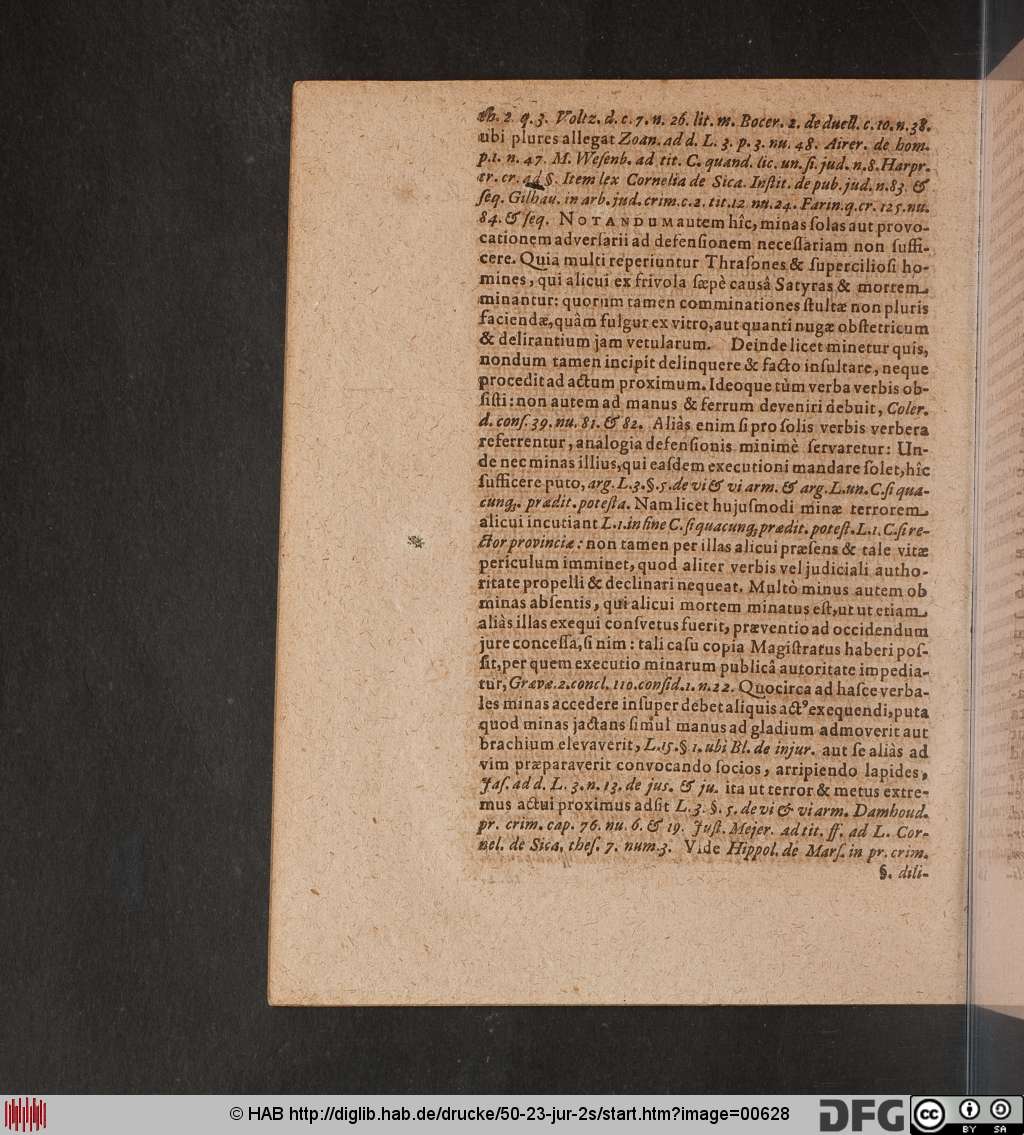 th. 2. q. 3. Voltz. d. c. 7. n. 26. lit. m. Bocer. 2. de duell. c. 10. n. 38.
ubi plures allegat Zoan. ad d. L. 3. p. 3. nu. 48. Airer. de hom.
p. 1. n. 47. M. Weſenb. ad tit. C. quand. lic. un. ſi. jud. n. 8. Harpr.
tr. cr. ad §. Item lex Cornelia de Sica. Inſtit. de pub. jud. n. 83. &
ſeq. Gilhau. in arb. jud. crim. c. 2. tit. 12 nu. 24. Farin. q. cr. 125. nu.
84. & ſeq. NOTANDUM autem hîc, minas ſolas aut provo-
cationem adverſarii ad defenſionem neceſſariam non ſuffi-
cere. Quia multi reperiuntur Thraſones & ſupercilioſi ho-
mines, qui alicui ex frivola ſæpè causâ Satyras & mortem
minantur: quorum tamen comminationes ſtultæ non pluris
faciendæ, quàm fulgur ex vitro, aut quanti nugæ obſtetricum
& delirantium jam vetularum. Deinde licet minetur quis,
nondum tamen incipit delinquere & facto inſultare, neque
procedit ad actum proximum. Ideoque tùm verba verbis ob-
ſiſti: non autem ad manus & ferrum deveniri debuit, Coler.
d. conſ. 39. nu. 81. & 82. Aliàs enim ſi pro ſolis verbis verbera
referrentur, analogia defenſionis minimè ſervaretur: Un-
de nec minas illius, qui eaſdem executioni mandare ſolet, hîc
ſufficere puto, arg. L. 3. §. 5. de vi & vi arm. & arg. L. un. C. ſi qua-
cunq; prædit. poteſta. Nam licet hujuſmodi minæ terrorem
alicui incutiant L. 1. in fine C. ſi quacunq; prædit. poteſt. L. 1. C. ſi re-
ctor provinciæ: non tamen per illas alicui præſens & tale vitæ
periculum imminet, quod aliter verbis vel judiciali autho-
ritate propelli & declinari nequeat. Multò minus autem ob
minas abſentis, qui alicui mortem minatus eſt, ut ut etiam
aliàs illas exequi conſvetus fuerit, præventio ad occidendum
jure conceſſa, ſi nim: tali caſu copia Magiſtratus haberi poſ-
ſit, per quem executio minarum publicâ autoritate impedia-
tur, Grævæ. 2. concl. 110. conſid. 1. n. 22. Quocirca ad haſce verba-
les minas accedere inſuper debet aliquis actꝰ exequendi, puta
quod minas jactans ſimul manus ad gladium admoverit aut
brachium elevaverit, L. 15. § 1. ubi Bl. de injur. aut ſe aliàs ad
vim præparaverit convocando ſocios, arripiendo lapides,
Jaſ. ad d. L. 3. n. 13. de jus. & ju. ita ut terror & metus extre-
mus actui proximus adſit L. 3. §. 5. de vi & vi arm. Damhoud.
pr. crim. cap. 76. nu. 6. & 19. Juſt. Mejer. ad tit. ff. ad L. Cor-
nel. de Sica, theſ. 7. num. 3. Vide Hippol. de Marſ. in pr. crim.
§. dili-
© HAB http://diglib.hab.de/drucke/50-23-jur-2s/start.htm?image=00628
DFG
cc BY SA